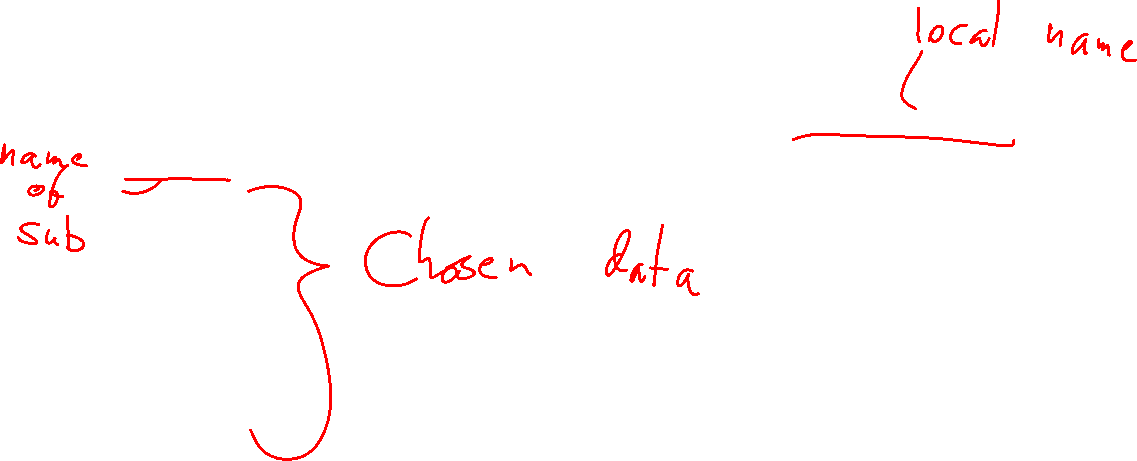 local name
name
of
sub
Chosen data